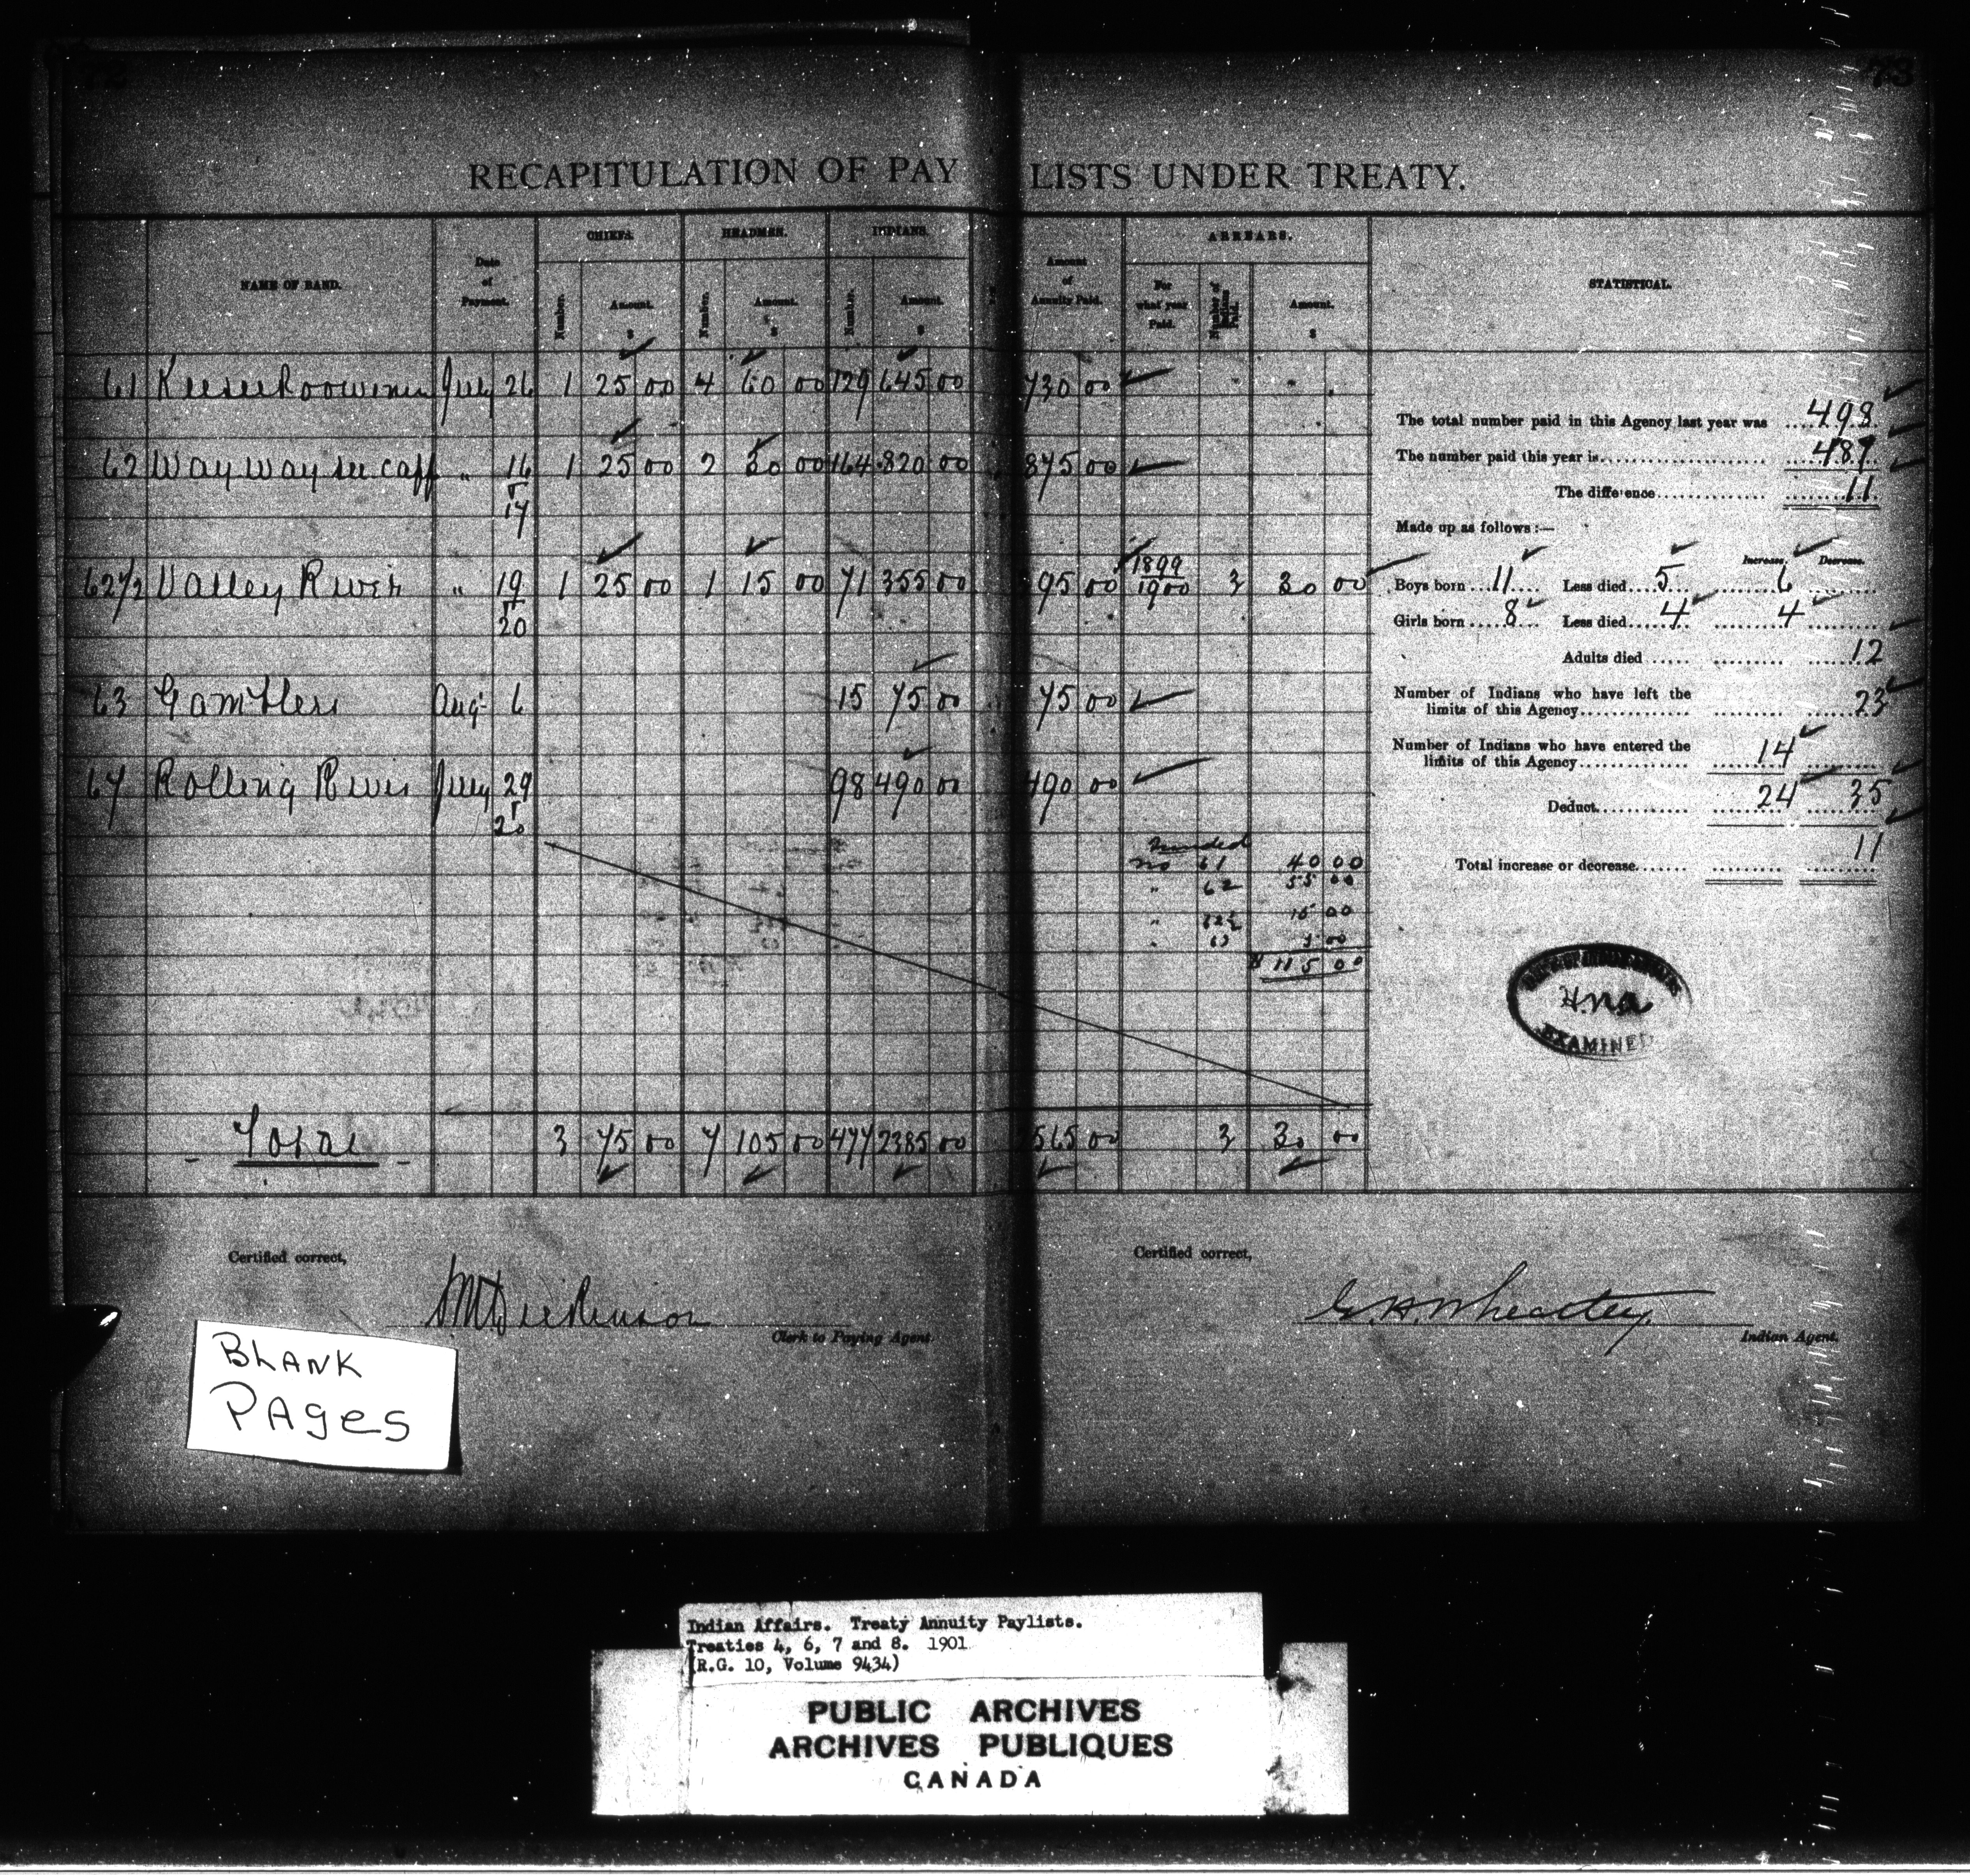 73
RECAPITULATION OF PAY LISTS UNDER TREATY.
NAME OF BAND. Date of Payment. CHIEFS. HEADMEN. INDIANS. Amount of Annuity Paid. ARREARS. STATISTICAL.
Number. Amount. $ Number. Amount. $ Number. Amount. $ For what year Paid. Number of Indians Paid. Amount. $
61 Keeseekoowenin July 26 1 25 00 4 60 00 129 645 00 730 00
62 Way way see capp " 16 1 25 00 2 30 00 164 820 00 875 00
17
62 1/2 Valley River " 19 1 25 00 1 15 00 71 355 00 395 00 1899 1900 3 30 00
20
63 Gamblers Aug. 6 15 75 00 75 00
64 Rolling River July 29 98 490 00 490 00
no 61 40 00
" 62 55 00
" 62½ 15 00
" 63 5 00
$ 115 00
Total 3 75 00 7 105 00 477 2385 00 2565 00 3 30 00
The total number paid in this Agency last year was 498
The number paid this year is 487
The difference 11
Made up as follows :—
Increase. Decrease.
Boys born 11 Less died 5 6
Girls born 8 Less died 4 4
Adults died 12
Number of Indians who have left the
limits of this Agency 23
Number of Indians who have entered the
limits of this Agency 14
Deduct 24 35
Total increase or decrease 11
EXAMINED
Certified correct,
Dickinson
Clerk to Paying Agent.
Certified correct,
G. H. Wheatley.
Indian Agent.
BLANK
PAges
Indian Affairs. Treaty Annuity Paylists.
Treaties 4, 6, 7 and 8. 1901
(R.G. 10, Volume 9434)
PUBLIC ARCHIVES
ARCHIVES PUBLIQUES
CANADA